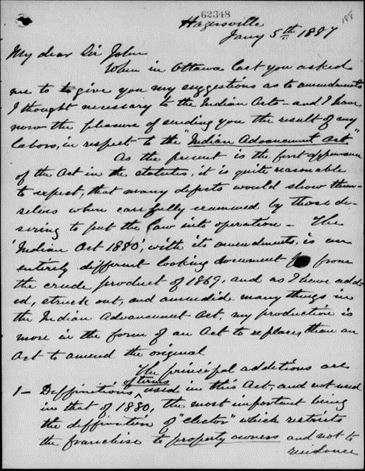 62348
188
Hagersville
Jany 5th 1887
My dear Sir John
When in Ottawa last you asked
me to to give you my suggestions as to amendments
I thought necessary to the Indian Acts - and I have
now the pleasure of sending you the result of my
labors, in respect to the "Indian Advancement Act."
As the present is the first appearance
of the Act in the statutes, it is quite reasonable
to expect, that many defects would show them-
selves when carefully scanned by those de-
siring to put the law into operation - The
'Indian Act 1880', with its amendments, is an
entirely different looking document from
the crude product of 1869. and as I have add-
ed, struck out, and amended many things in
the Indian Advancement Act, my production is
more in the form of an Act to replace, than an
Act to amend the original
The principal additions are
1 - Deffinitions of terms used in this Act, and not used
in that of 1880, the most important being
the deffinition of "elector" which restricts
the franchise to property owners and not to
residence